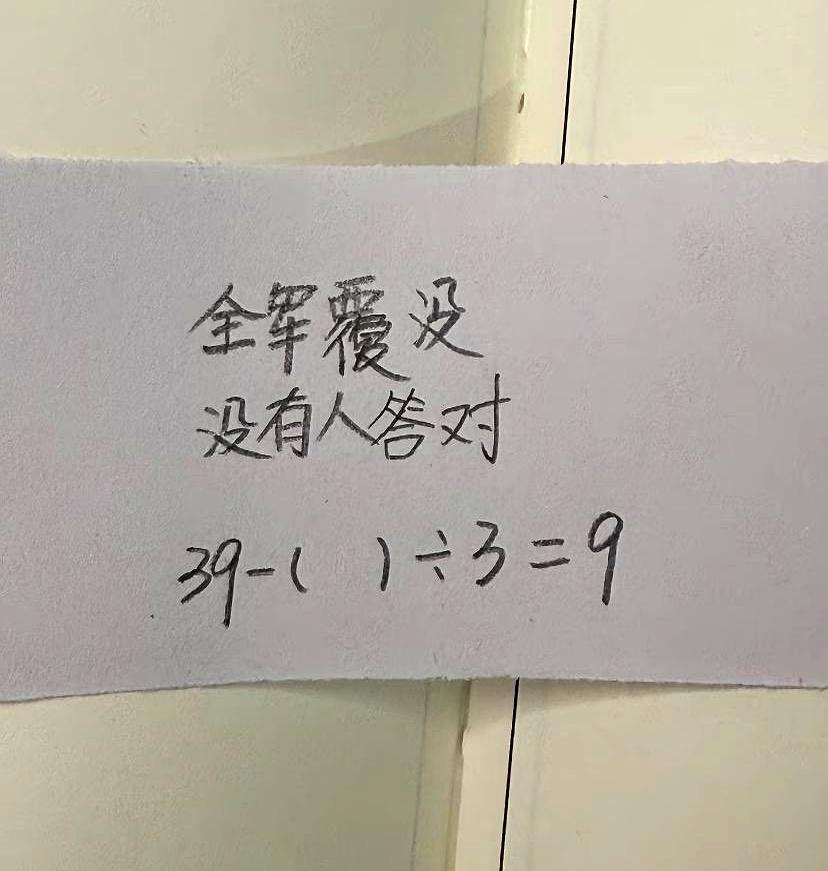 全军覆没
没有人答对
39-(  )÷3=9